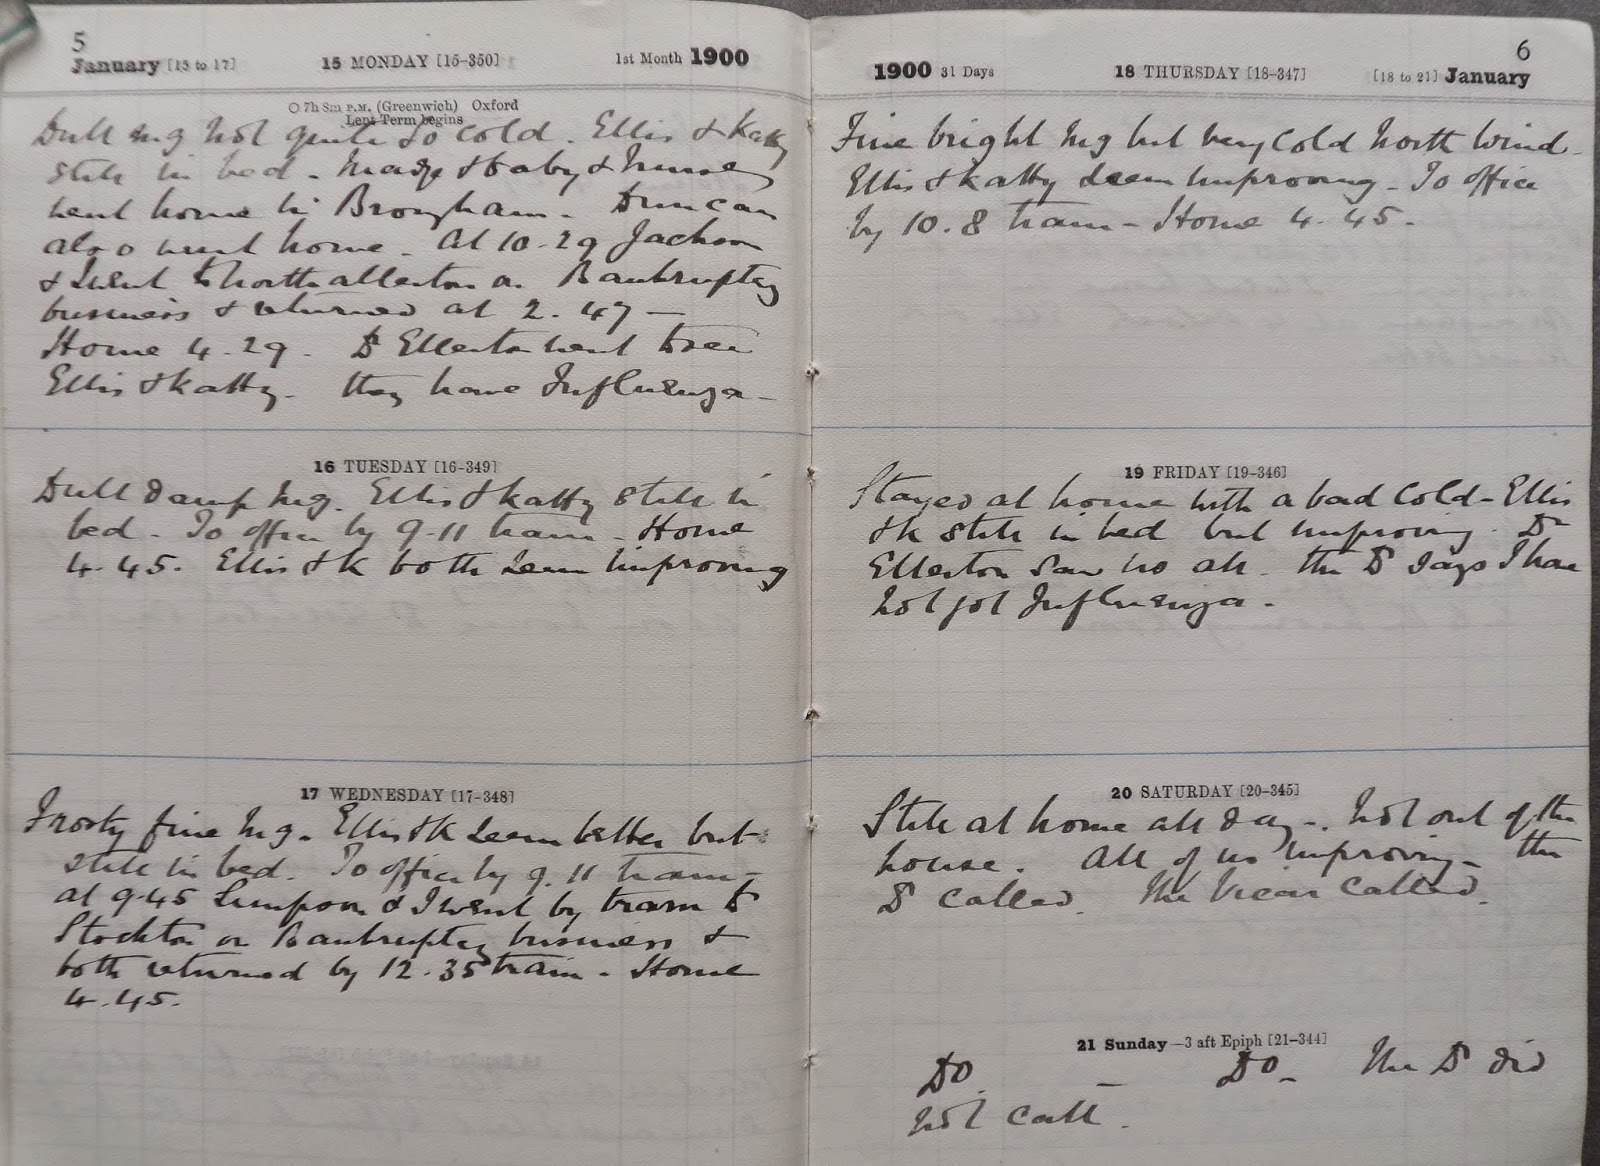 5
January [15 to 17] 15 MONDAY [15-350] 1st Month 1900
7h 8m P.M. (Greenwich) Oxford
Lent Term begins
Dull mg not quite so cold. Ellis & Katty
still in bed - Madge & baby & Nurse
went home in Brougham - Duncan
also went home. At 10-29 Jackson
& I went to Northallerton on Bankruptcy
business & returned at 2.47 -
Home 4-29. Dr Ellerton went to see
Ellis & Katty. They have Influenza -
16 TUESDAY [16-349]
Dull damp mg. Ellis & Katty still in
bed - To office by 9-11 train - Home
4.45. Ellis & K both seem improving
17 WEDNESDAY [17-348]
Frosty fine mg. Ellis & K seem better but
still in bed. To office by 9.11 train -
at 9.45 Simpson & I went by tram to
Stockton on Bankruptcy business &
both returned by 12.35 train - Home
4.45.
6
1900 31 Days 18 THURSDAY [18-347] [18 to 21] January
Fine bright mg but very cold North Wind -
Ellis & Katty seem improving - To office
by 10.8 train - Home 4.45.
19 FRIDAY [19-346]
Stayed at home with a bad cold - Ellis
& K still in bed but improving. Dr
Ellerton saw us all. The Dr says I have
not got Influenza -
20 SATURDAY [20-345]
Still at home all day -. Not out of the
house. All of us improving - The
Dr called. The Vicar called.
21 Sunday-3 aft Epiph [21-344]
Do. - Do - The Dr did
not call.